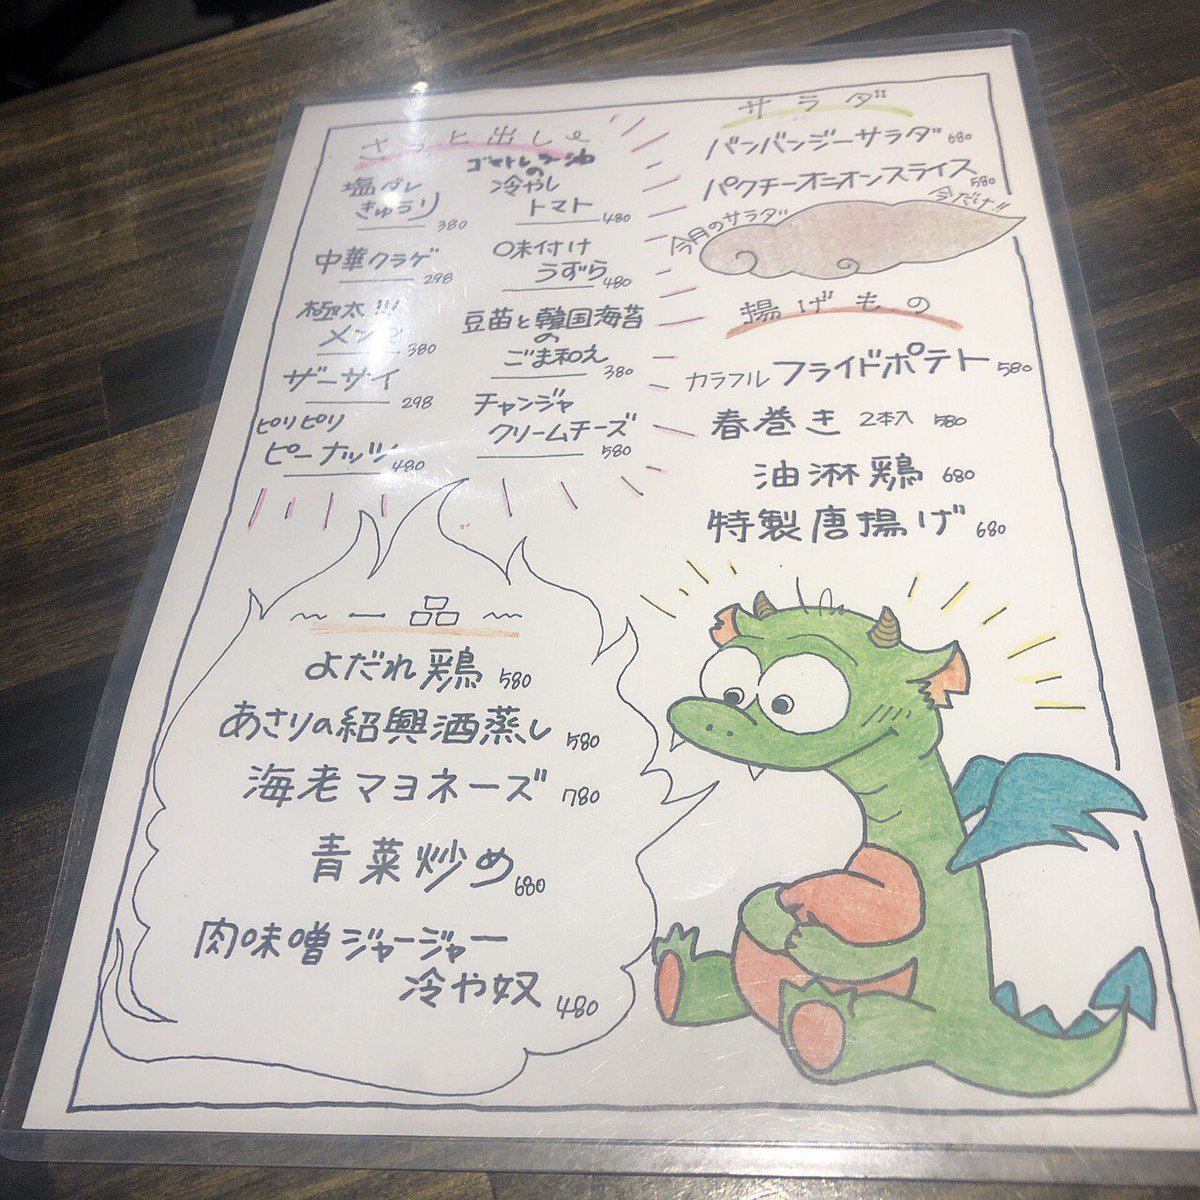 さっと出し
塩ダレ
きゅうり
380
中華クラゲ
298
極太!!!
メンマ
380
ザーサイ
298
ピリピリ
ピーナッツ
480
ゴマトレラー油
の
冷やし
トマト
480
味付け
うずら
480
豆苗と韓国海苔
の
ごま和え
380
チャンジャ
クリームチーズ
580
サラダ
バンバンジーサラダ 680
パクチーオニオンスライス 580
今月のサラダ
今だけ!!
揚げもの
カラフル フライドポテト 580
春巻き 2本入 580
油淋鶏 680
特製唐揚げ 680
~一品~
よだれ鶏 580
あさりの紹興酒蒸し 580
海老マヨネーズ 780
青菜炒め 680
肉味噌ジャージャー
冷や奴 480